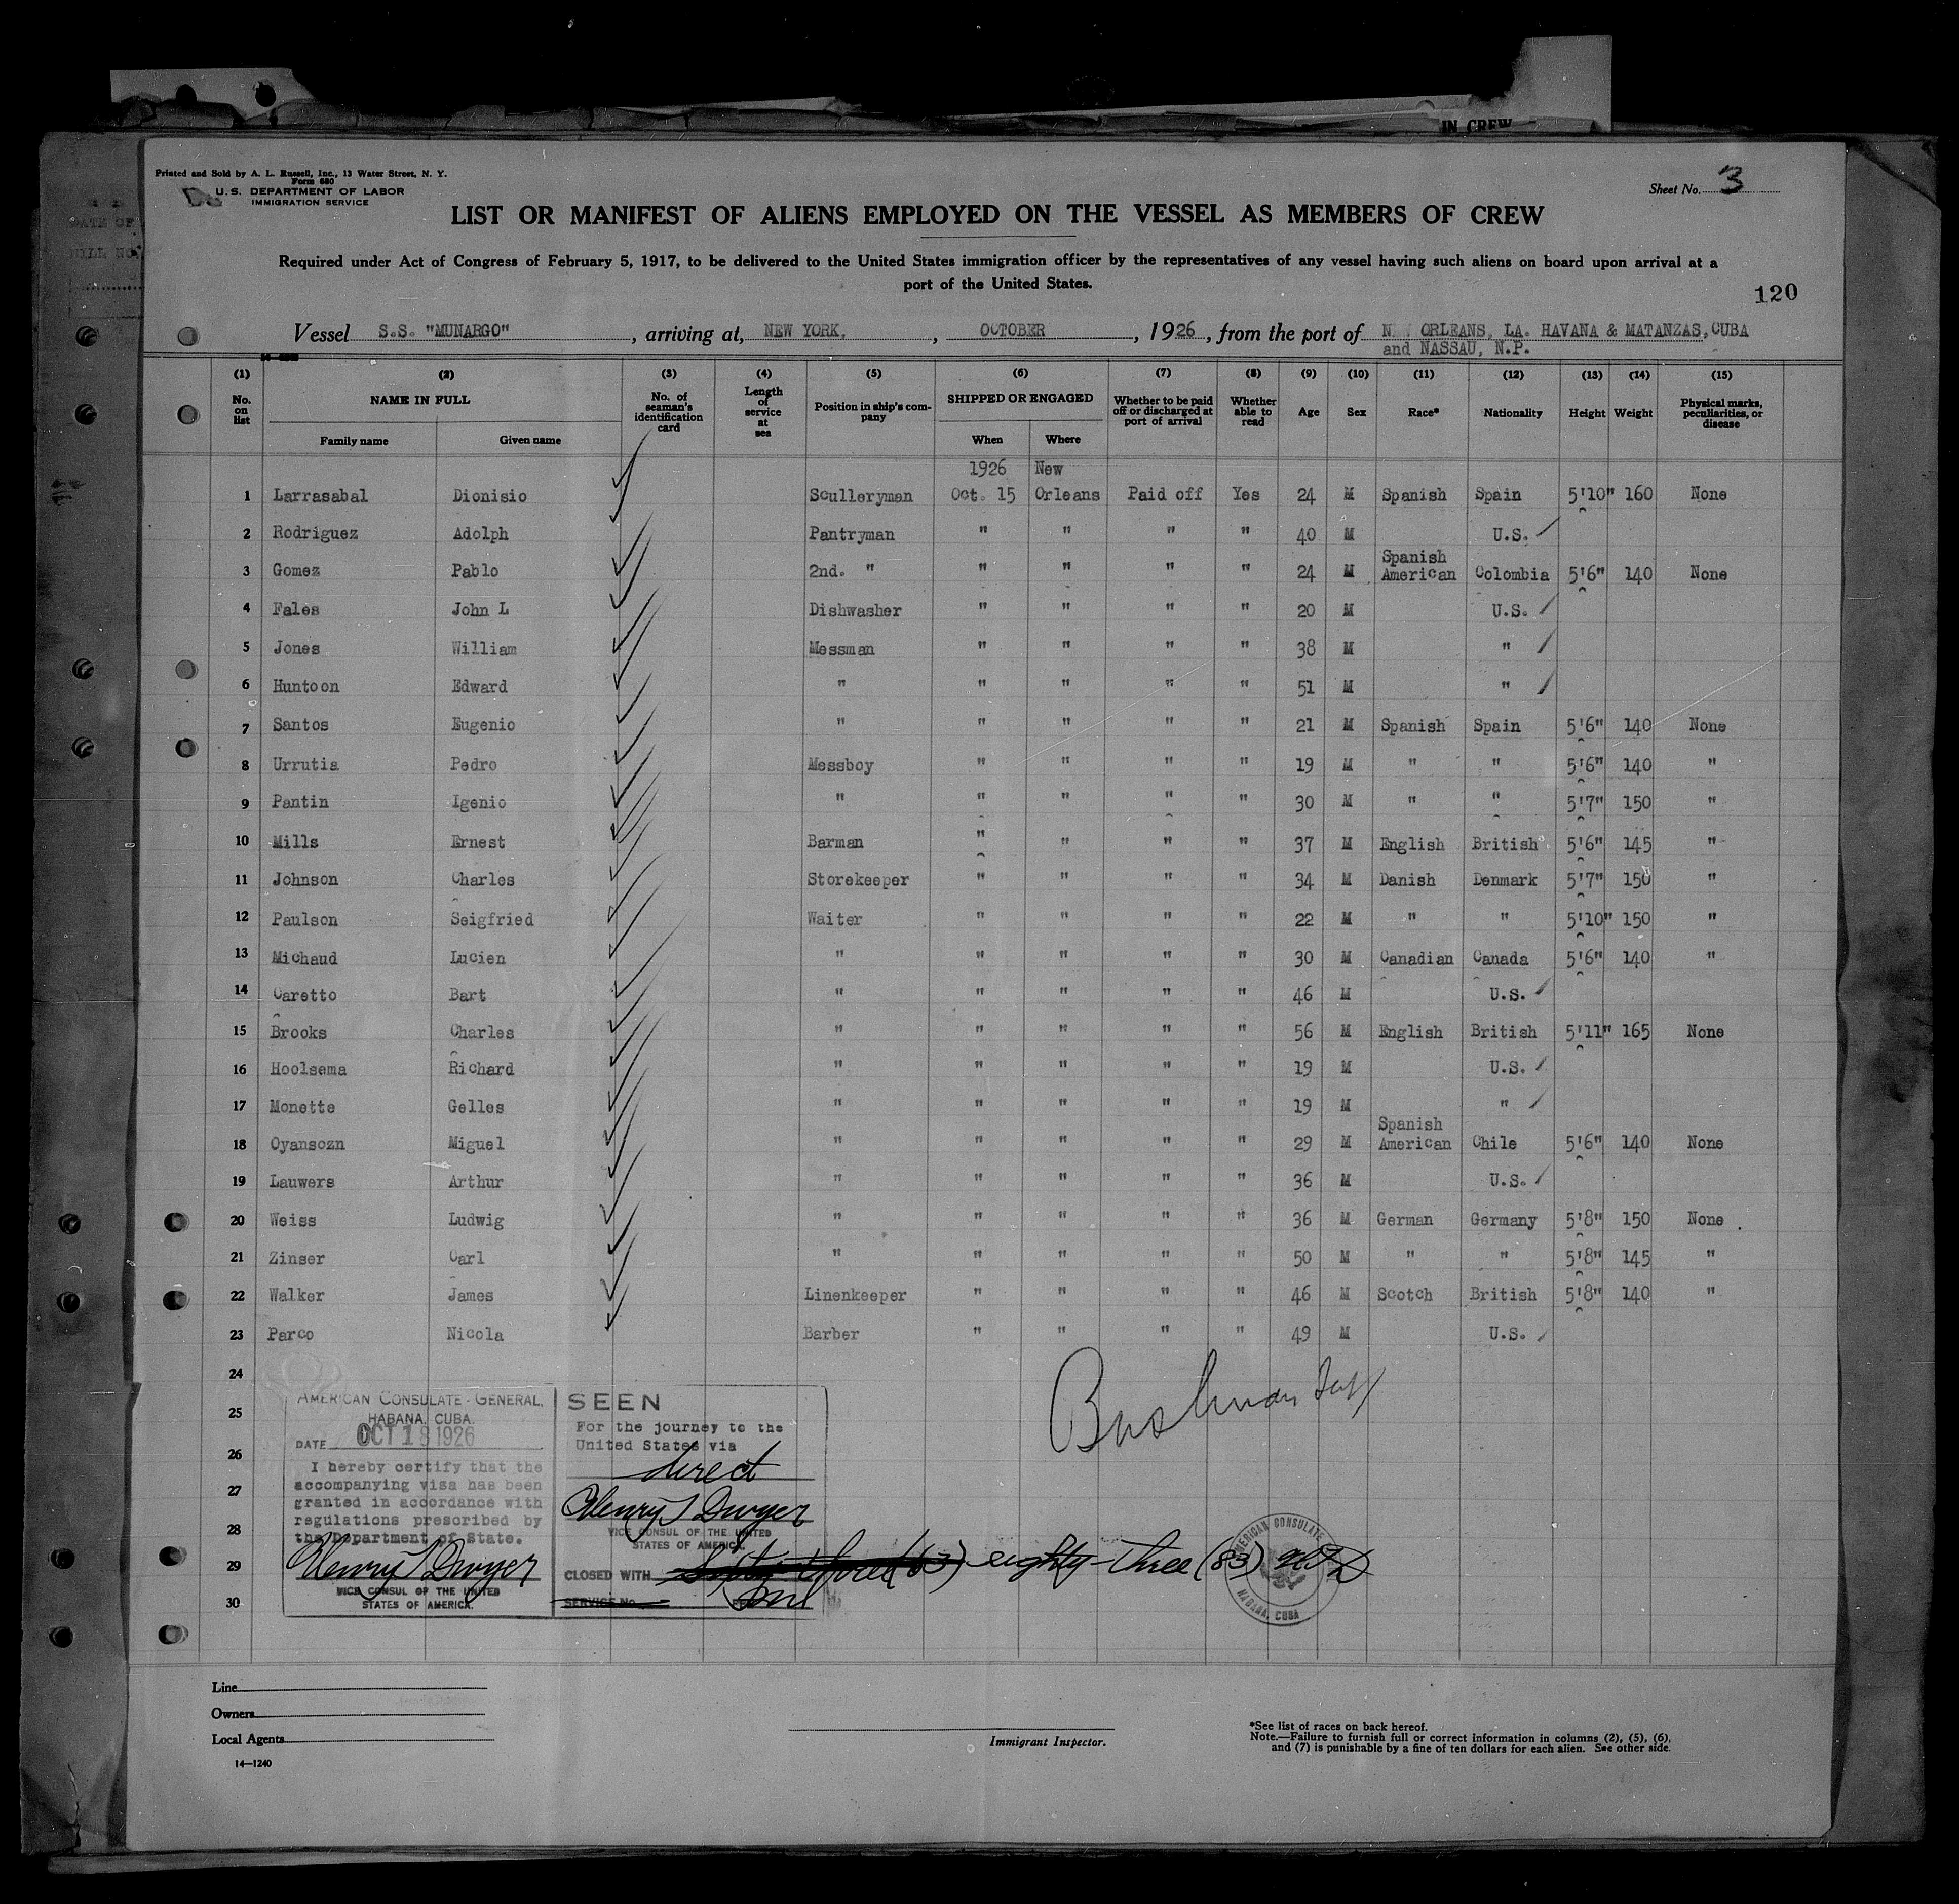 IN CREW
Printed and Sold by A. L. Russell, Inc., 13 Water Street, N. Y.
Form 680
U. S. DEPARTMENT OF LABOR
IMMIGRATION SERVICE
Sheet No. 3
LIST OR MANIFEST OF ALIENS EMPLOYED ON THE VESSEL AS MEMBERS OF CREW
Required under Act of Congress of February 5, 1917, to be delivered to the United States immigration officer by the representatives of any vessel having such aliens on board upon arrival at a
port of the United States.
120
Vessel S.S. "MUNARGO", arriving at, NEW YORK, OCTOBER, 1926, from the port of ORLEANS, LA. HAVANA & MATANZAS, CUBA
and NASSAU, N.P.
(1) (2) (3) (4) (5) (6) (7) (8) (9) (10) (11) (12) (13) (14) (15)
No. on list NAME IN FULL Family name Given name No. of seaman's identification card Length of service at sea Position in ship's company SHIPPED OR ENGAGED When Where Whether to be paid off or discharged at port of arrival Whether able to read Age Sex Race* Nationality Height Weight Physical marks, peculiarities, or disease
1926 New
1 Larrasabal Dionisio Sculleryman Oct. 15 Orleans Paid off Yes 24 M Spanish Spain 5'10" 160 None
2 Rodriguez Adolph Pantryman " " " " 40 M U.S.
3 Gomez Pablo 2nd. " " " " " 24 M Spanish American Colombia 5'6" 140 None
4 Fales John L Dishwasher " " " " 20 M U.S.
5 Jones William Messman " " " " 38 M "
6 Huntoon Edward " " " " " 51 M "
7 Santos Eugenio " " " " " 21 M Spanish Spain 5'6" 140 None
8 Urrutia Pedro Messboy " " " " 19 M " " 5'6" 140 "
9 Pantin Igenio " " " " " 30 M " " 5'7" 150 "
10 Mills Ernest Barman " " " " 37 M English British 5'6" 145 "
11 Johnson Charles Storekeeper " " " " 34 M Danish Denmark 5'7" 150 "
12 Paulson Seigfried Waiter " " " " 22 M " " 5'10" 150 "
13 Michaud Lucien " " " " " 30 M Canadian Canada 5'6" 140 "
14 Caretto Bart " " " " " 46 M U.S.
15 Brooks Charles " " " " " 56 M English British 5'11" 165 None
16 Hoolsema Richard " " " " " 19 M U.S.
17 Monette Gelles " " " " " 19 M "
18 Oyansozn Miguel " " " " " 29 M Spanish American Chile 5'6" 140 None
19 Lauwers Arthur " " " " " 36 M U.S.
20 Weiss Ludwig " " " " " 36 M German Germany 5'8" 150 None
21 Zinser Carl " " " " " 50 M " " 5'8" 145 "
22 Walker James Linenkeeper " " " " 46 M Scotch British 5'8" 140 "
23 Parco Nicola Barber " " " " 49 M U.S.
24
25
26
27
28
29
30
AMERICAN CONSULATE-GENERAL,
HABANA, CUBA.
DATE OCT 18 1926
I hereby certify that the
accompanying visa has been
granted in accordance with
regulations prescribed by
the Department of State.
Henry T Dwyer
VICE CONSUL OF THE UNITED
STATES OF AMERICA.
SEEN
For the journey to the
United States via
direct
Henry T Dwyer
VICE CONSUL OF THE UNITED
STATES OF AMERICA.
CLOSED WITH eighty-three (83)
SERVICE No.
AMERICAN CONSULATE
HABANA, CUBA
Line
Owners
Local Agents
14—1240
Immigrant Inspector.
*See list of races on back hereof.
Note.—Failure to furnish full or correct information in columns (2), (5), (6),
and (7) is punishable by a fine of ten dollars for each alien. See other side.